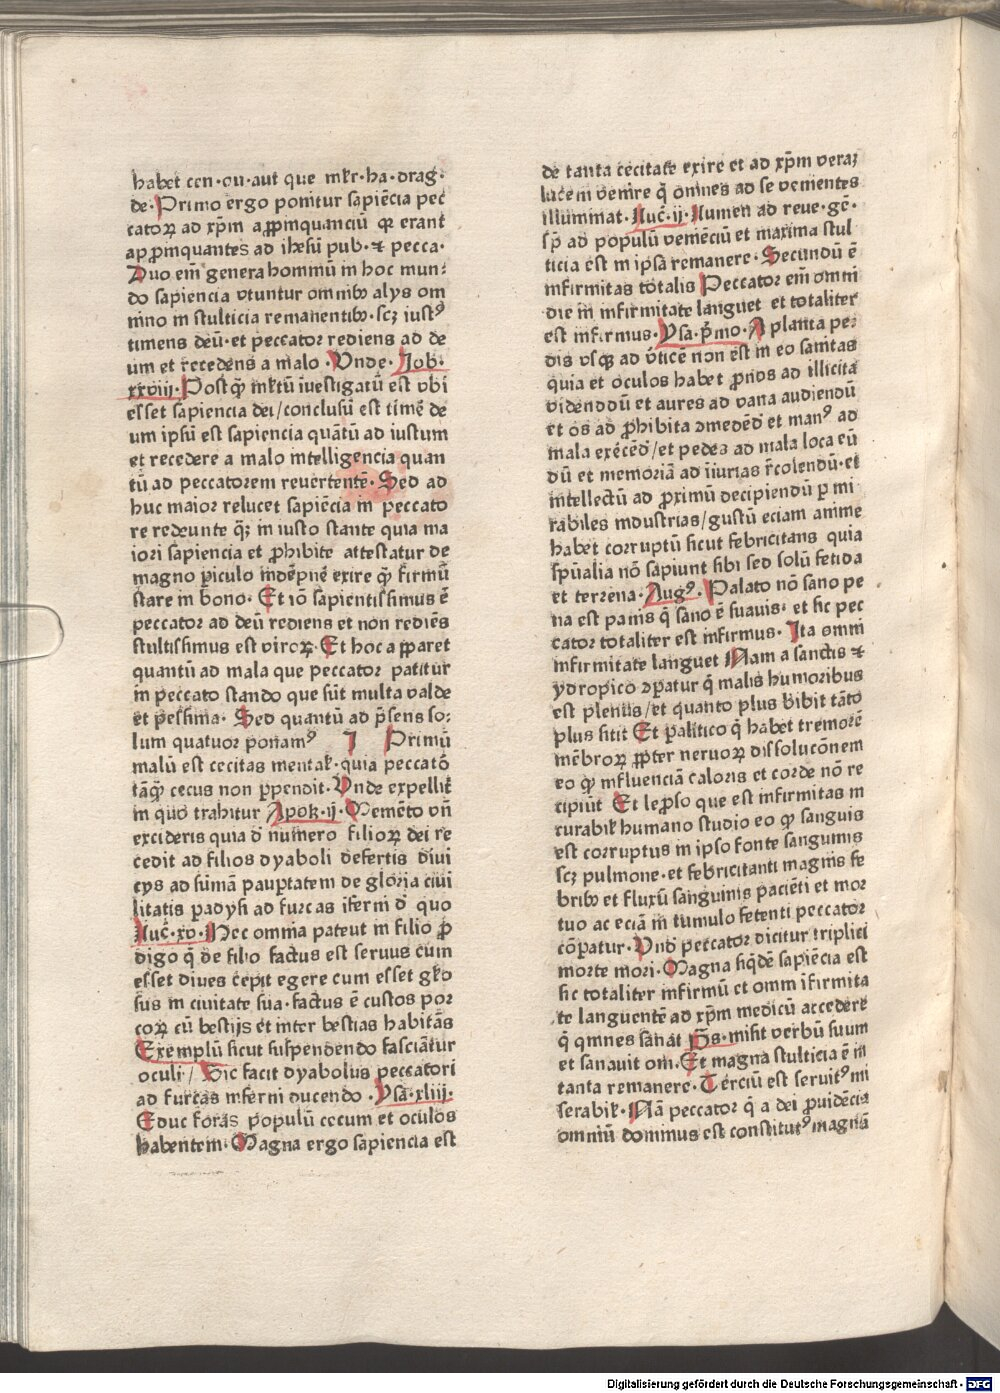 habet cen·ou·aut que mkr·ha·drag·
de·Primo ergo ponitur sapiēcia pec
catoꝝ ad xp̄m appꝛopinquanciū qꝛ erant
appꝛopinquantes ad ihesū pub·⁊ pecca·
Duo em̄ genera hominū in hoc mun⸗
do sapiencia vtuntur omnibꝰ alijs om
nino in stulticia remanentibꝰ·scꝫ iustꝰ
timens deū·et peccator rediens ad de
um et recedens a malo·Vnde·Job·
xxviij·Postqꝫ̄ mktū īuestigatū est vbi
esset sapiencia dei/conclusū est timē de
um ipsū est sapiencia quātū ad iustum
et recedere a malo intelligencia quan
tū ad peccatorem reuertentē·Sed ad
huc maior relucet sapiēcia in peccato
re redeunte qꝫ in iusto stante quia ma
iori sapiencia et ꝓhibite attestatur de
magno ꝑiculo indēpnē exire qꝫ̄ firmū
stare in bono·Et iō sapientissimus ē
peccator ad deū rediens et non rediēs
stultissimus est viroꝝ·Et hoc apparet
quantū ad mala que peccator patitur
in peccato stando que sūt multa valde
et pessima·Sed quantū ad p̄sens so⸗
lum quatuor ponamꝰ I Primū
malū est cecitas mentak·quia peccatō
tāqꝫ̄ cecus non ꝑpendit·Vnde expellit
in quo trahitur Apok·ij·Memēto vn̄
excideris quia d̄ numero filioꝝ dei re
cedit ad filios dyaboli desertis diui
cijs ad sūmā paupertatem de gloria ciui
litatis paradysi ad furcas īferni d̄ quo
Luc̄·xv·Hec omnia patent in filio ꝓ
digo qͥ de filio factus est seruus cum
esset diues cepit egere cum esset glo
sus in ciuitate sua·factus ē custos por
coꝝ cū bestijs et inter bestias habitās
Exemplū sicut suspendendo fasciātur
oculi/Sic facit dyabolus peccatori
ad furcas inferni ducendo·Ysa·xliij·
Educ foras populū cecum et oculos
habentem·Magna ergo sapiencia est
de tanta cecitate exire et ad xp̄m veraꝫ
lucem venire qͥ omnes ad se venientes
illuminat·Luc̄·ij·Lumen ad reue·gē·
sꝫ ad populū veniēciū et maxima stul
ticia est in ipsa remanere·Secundū ē
infirmitas totalis Peccator em̄ omni
die in infirmitate languet et totaliter
est infirmus·Ysa·p̄mo·A planta pe⸗
dis vsqꝫ ad v̄ticē non est in eo sanitas
quia et oculos habet ꝓnos ad illicita
vidēdū et aures ad vana audiendū
et os ad ꝓhibita ꝯmedēd̄ et manꝰ ad
mala exēcēd̄/et pedes ad mala loca eū
dū et memoriā ad īiurias r̄colendū·et
intellectū ad ꝓximū decipiendū ꝑ mi
rabiles industrias/gustū eciam anime
habet corruptū sicut febricitans quia
spūalia nō sapiunt sibi sed solū fetida
et terrena·Augꝰ·Palato nō sano pe
na est panis qͥ sano ē suauis·et sic pec
cator totaliter est infirmus·Ita omni
infirmitate languet Nam a sanctis ⁊
ydropico ꝯꝑatur qͥ malis humoribus
est plenus/et quanto plus bibit tāto
plus sitit Et ꝑalitico qͥ habet tremorē
mēbroꝝ ꝓpter neruoꝝ dissolucōnem
eo qꝫ̄ influenciā caloris et corde nō re
cipiūt Et leproso que est infirmitas in
curabik humano studio eo qꝫ̄ sanguis
est corruptus in ipso fonte sanguinis
scꝫ pulmone·et febricitanti magnis fe
bribꝰ et fluxū sanguinis paciēti et mor
tuo ac eciā in tumulo fetenti peccator
cōꝑatur·Vnd̄ peccator dicitur triplici
morte mori·Magna siqͥdē sapiēcia est
sic totaliter infirmū et omni īfirmita
te languentē ad xp̄m medicū accedere
qͥ omnes sanat Ps̄·misit verbū suum
et sanauit om̄·Et magna stulticia ē in
tanta remanere·Terciū est seruitꝰ mi
serabik·Nā peccator qͥ a dei ꝓuidēcia
omniū dominus est constitutꝰ magnā
Digitalisierung gefördert durch die Deutsche Forschungsgemeinschaft - DFG